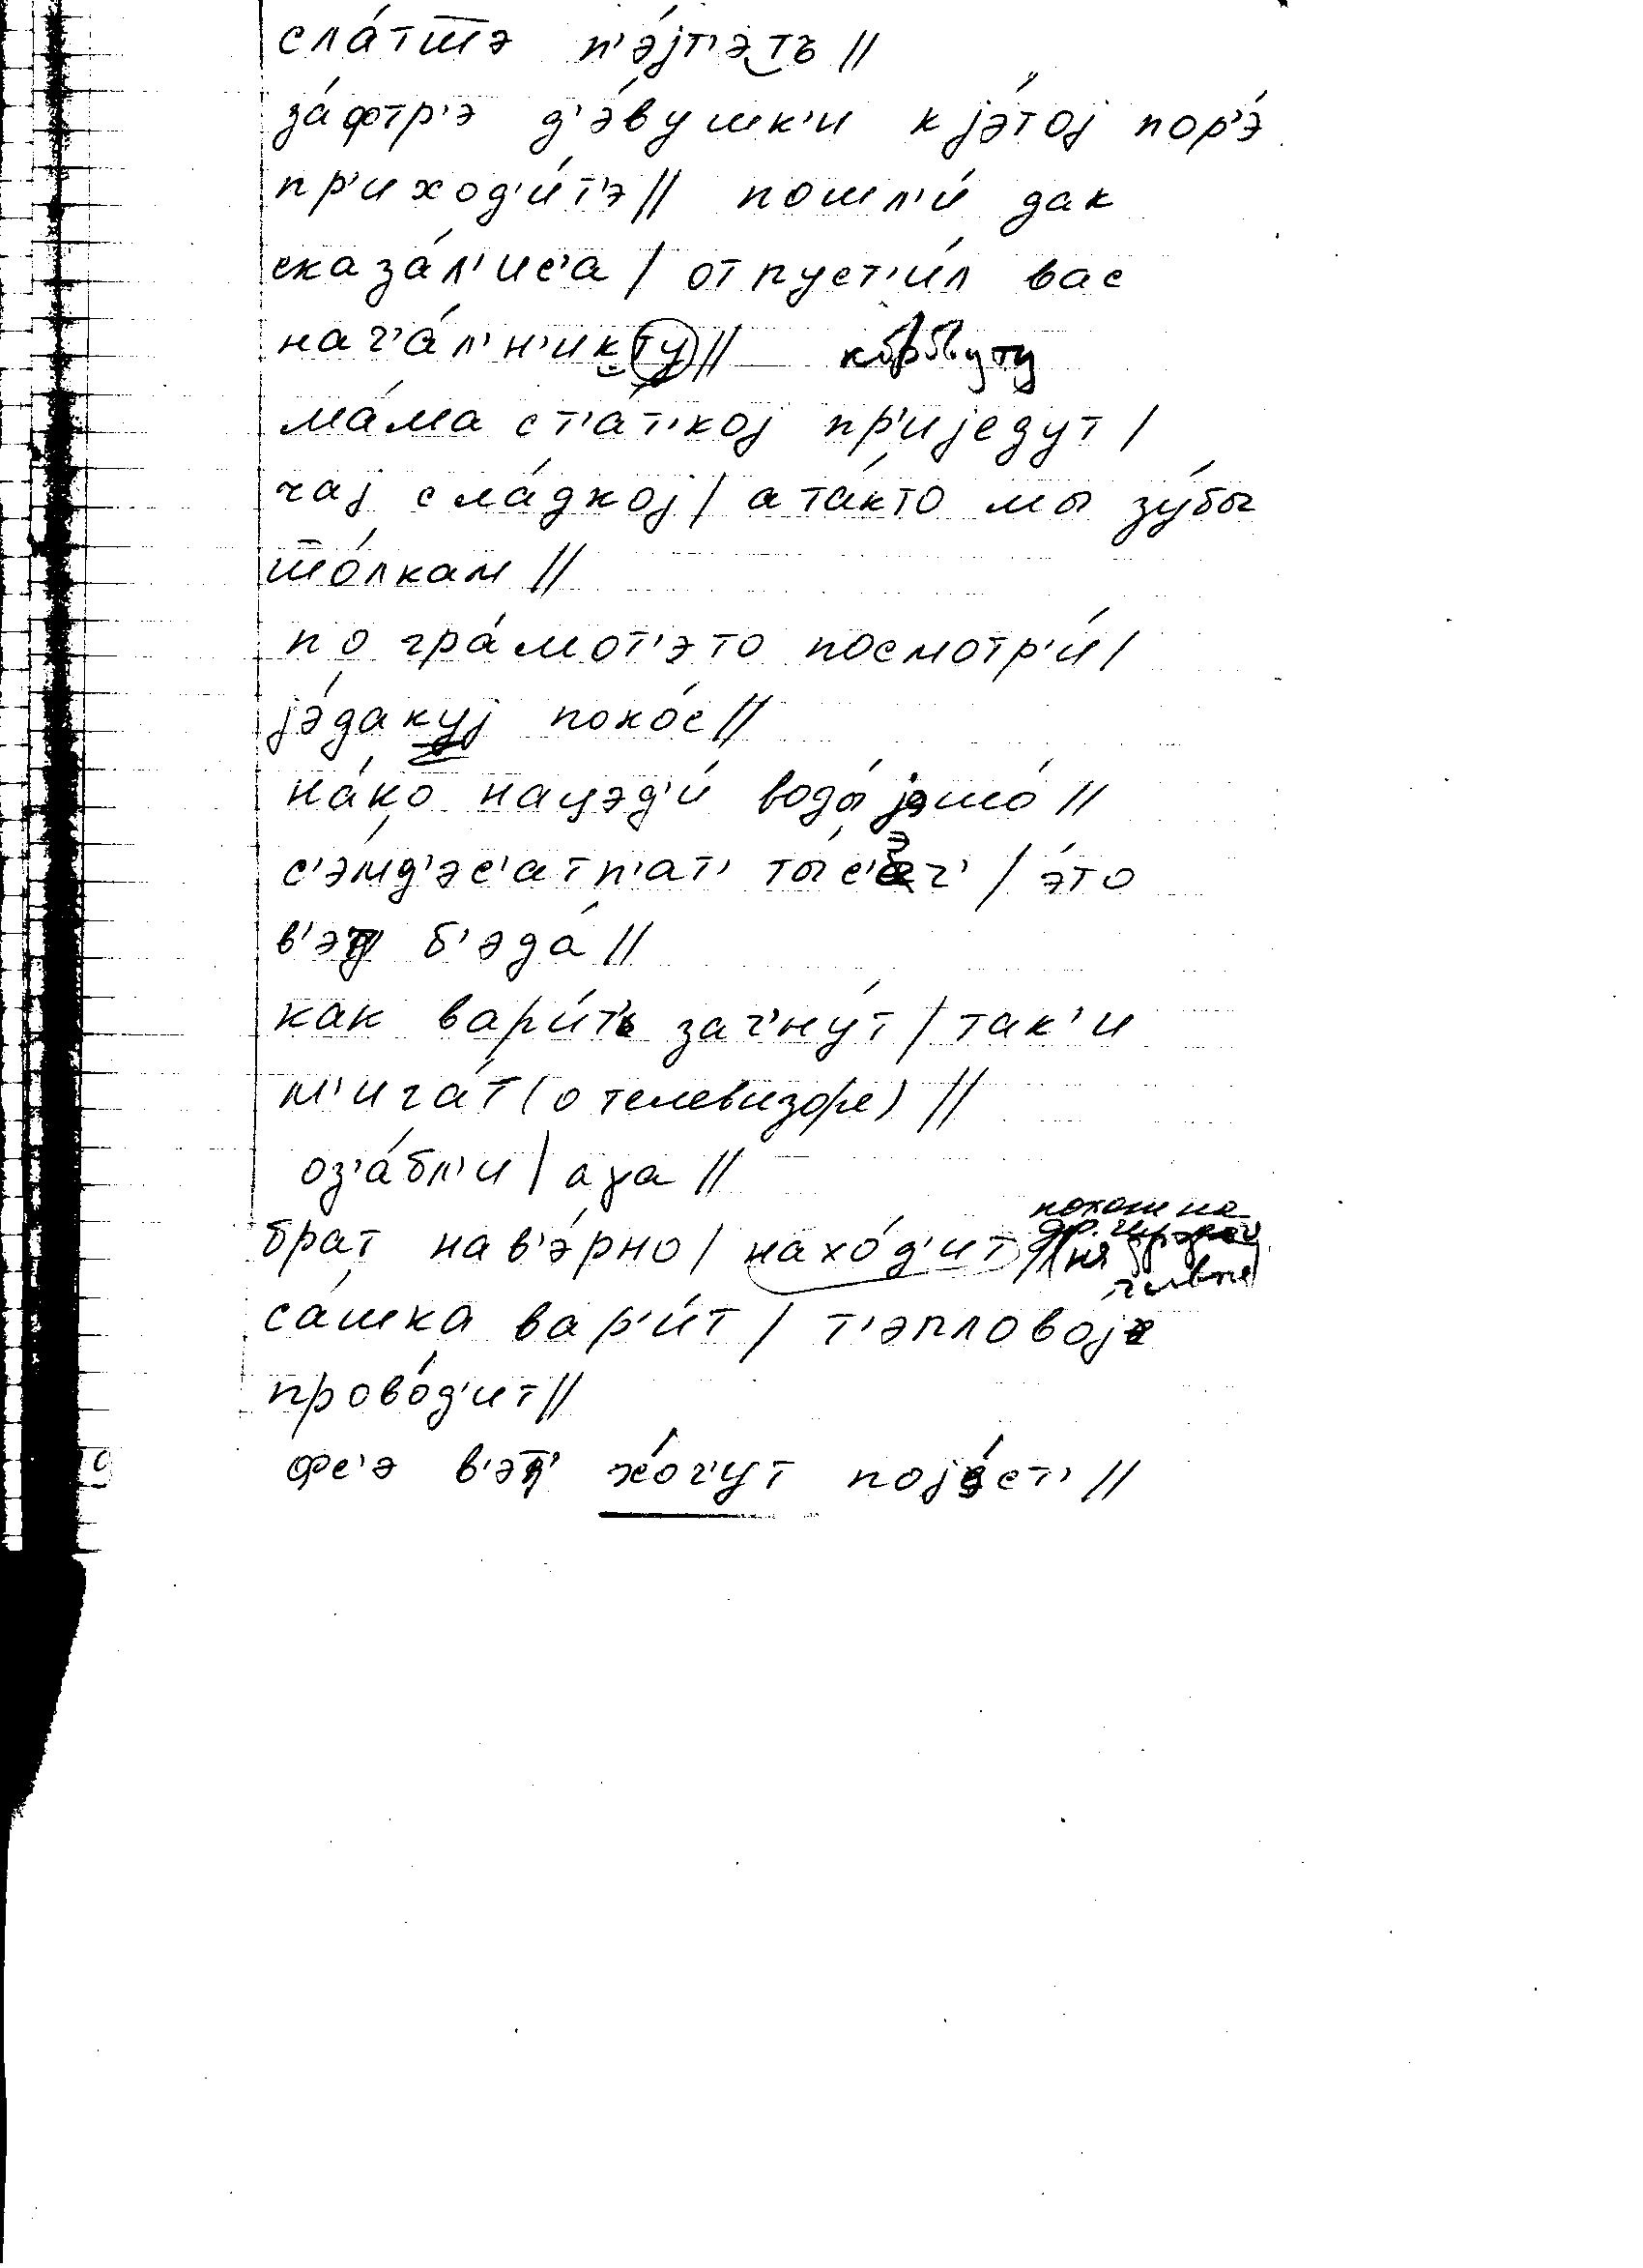 сла́тшэ п'э́јт'э тъ //
за́фтр'э д'э́вушк'и к јэ́тој пор'э́
пр'иход'и́т'э // пошл'и́ дак
сказа́л'ис'а / отпуст'и́л вас
нач'а́л'н'ик ту //
ма́ма с т'а́т'кој пр'иједут /
чај сла́дкој / а та́кто мы зу́бы
то́лкам //
по гра́мот'э то посмотр'и́ /
јэ́дакуј покос //
на́ко нацэд'и́ воды́ јэшо́ //
с'э́мд'эс'ат п'ат' ты́с'эч' / э́то
в'эт' б'эда́ //
как вари́т' зач'ну́т / так'и
м'ига́т (о телевизоре) //
оз'а́бл'и / аγа //
брат нав'э́рно / нахо́д'ит //
са́шка вар'и́т / т'эпловој
прово́д'ит //
фс'э в'эт' хо́ч'ут појэ́ст' //